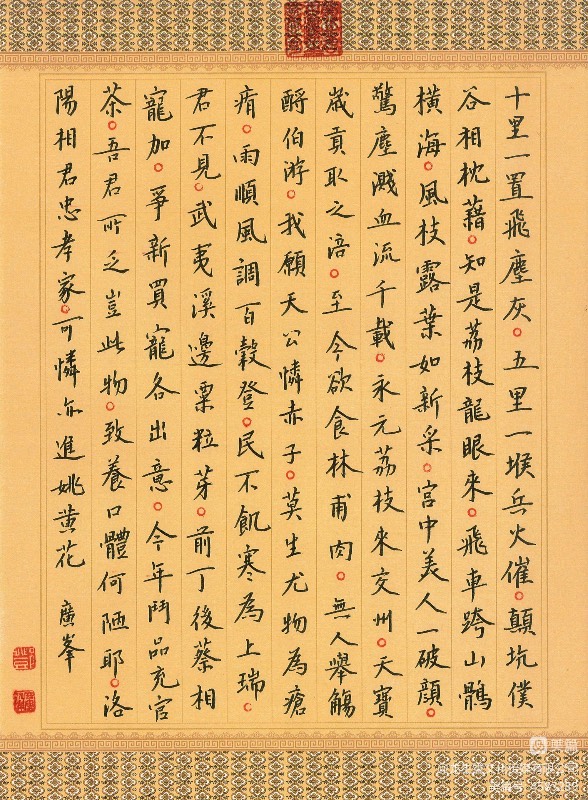 十里一置飛塵灰。五里一堠兵火催。顛坑僕
谷相枕藉。知是荔枝龍眼來。飛車跨山鶻
橫海。風枝露葉如新采。宮中美人一破顏。
驚塵濺血流千載。永元荔枝來交州。天寶
歲貢取之涪。至今欲食林甫肉。無人舉觴
酹伯游。我願天公憐赤子。莫生尤物為瘡
痏。雨順風調百穀登。民不飢寒為上瑞。
君不見。武夷溪邊粟粒芽。前丁後蔡相
寵加。爭新買寵各出意。今年鬥品充官
茶。吾君所乏豈此物。致養口體何陋耶。洛
陽相君忠孝家。可憐亦進姚黃花 廣峯